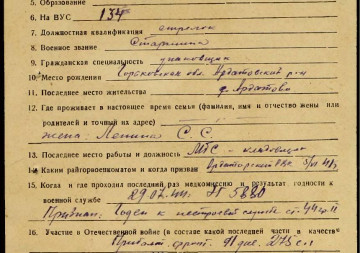 5. Образование
6. На ВУС 134
7. Должностная квалификация стрелок
8. Военное звание Старшина
9. Гражданская специальность
10. Место рождения Горьковская обл. Ардатовский р-н
11. Последнее место жительства г. Ардатов
12. Где проживает в настоящее время семья (фамилия, имя и отчество жены или
родителей и точный адрес)
жена: Ленина С. С.
13. Последнее место работы и должность МТС - кладовщик
14. Каким райгорвоенкоматом и когда призван Ардатовский РВК
15. Когда и где проходил последний раз медкомиссию и результат годности к
военной службе 29.02.44г.
Признан: Годен к нестроевой службе ст.
16. Участие в Отечественной войне (в составе какой последней части и в качестве
Прибалт. фронт.